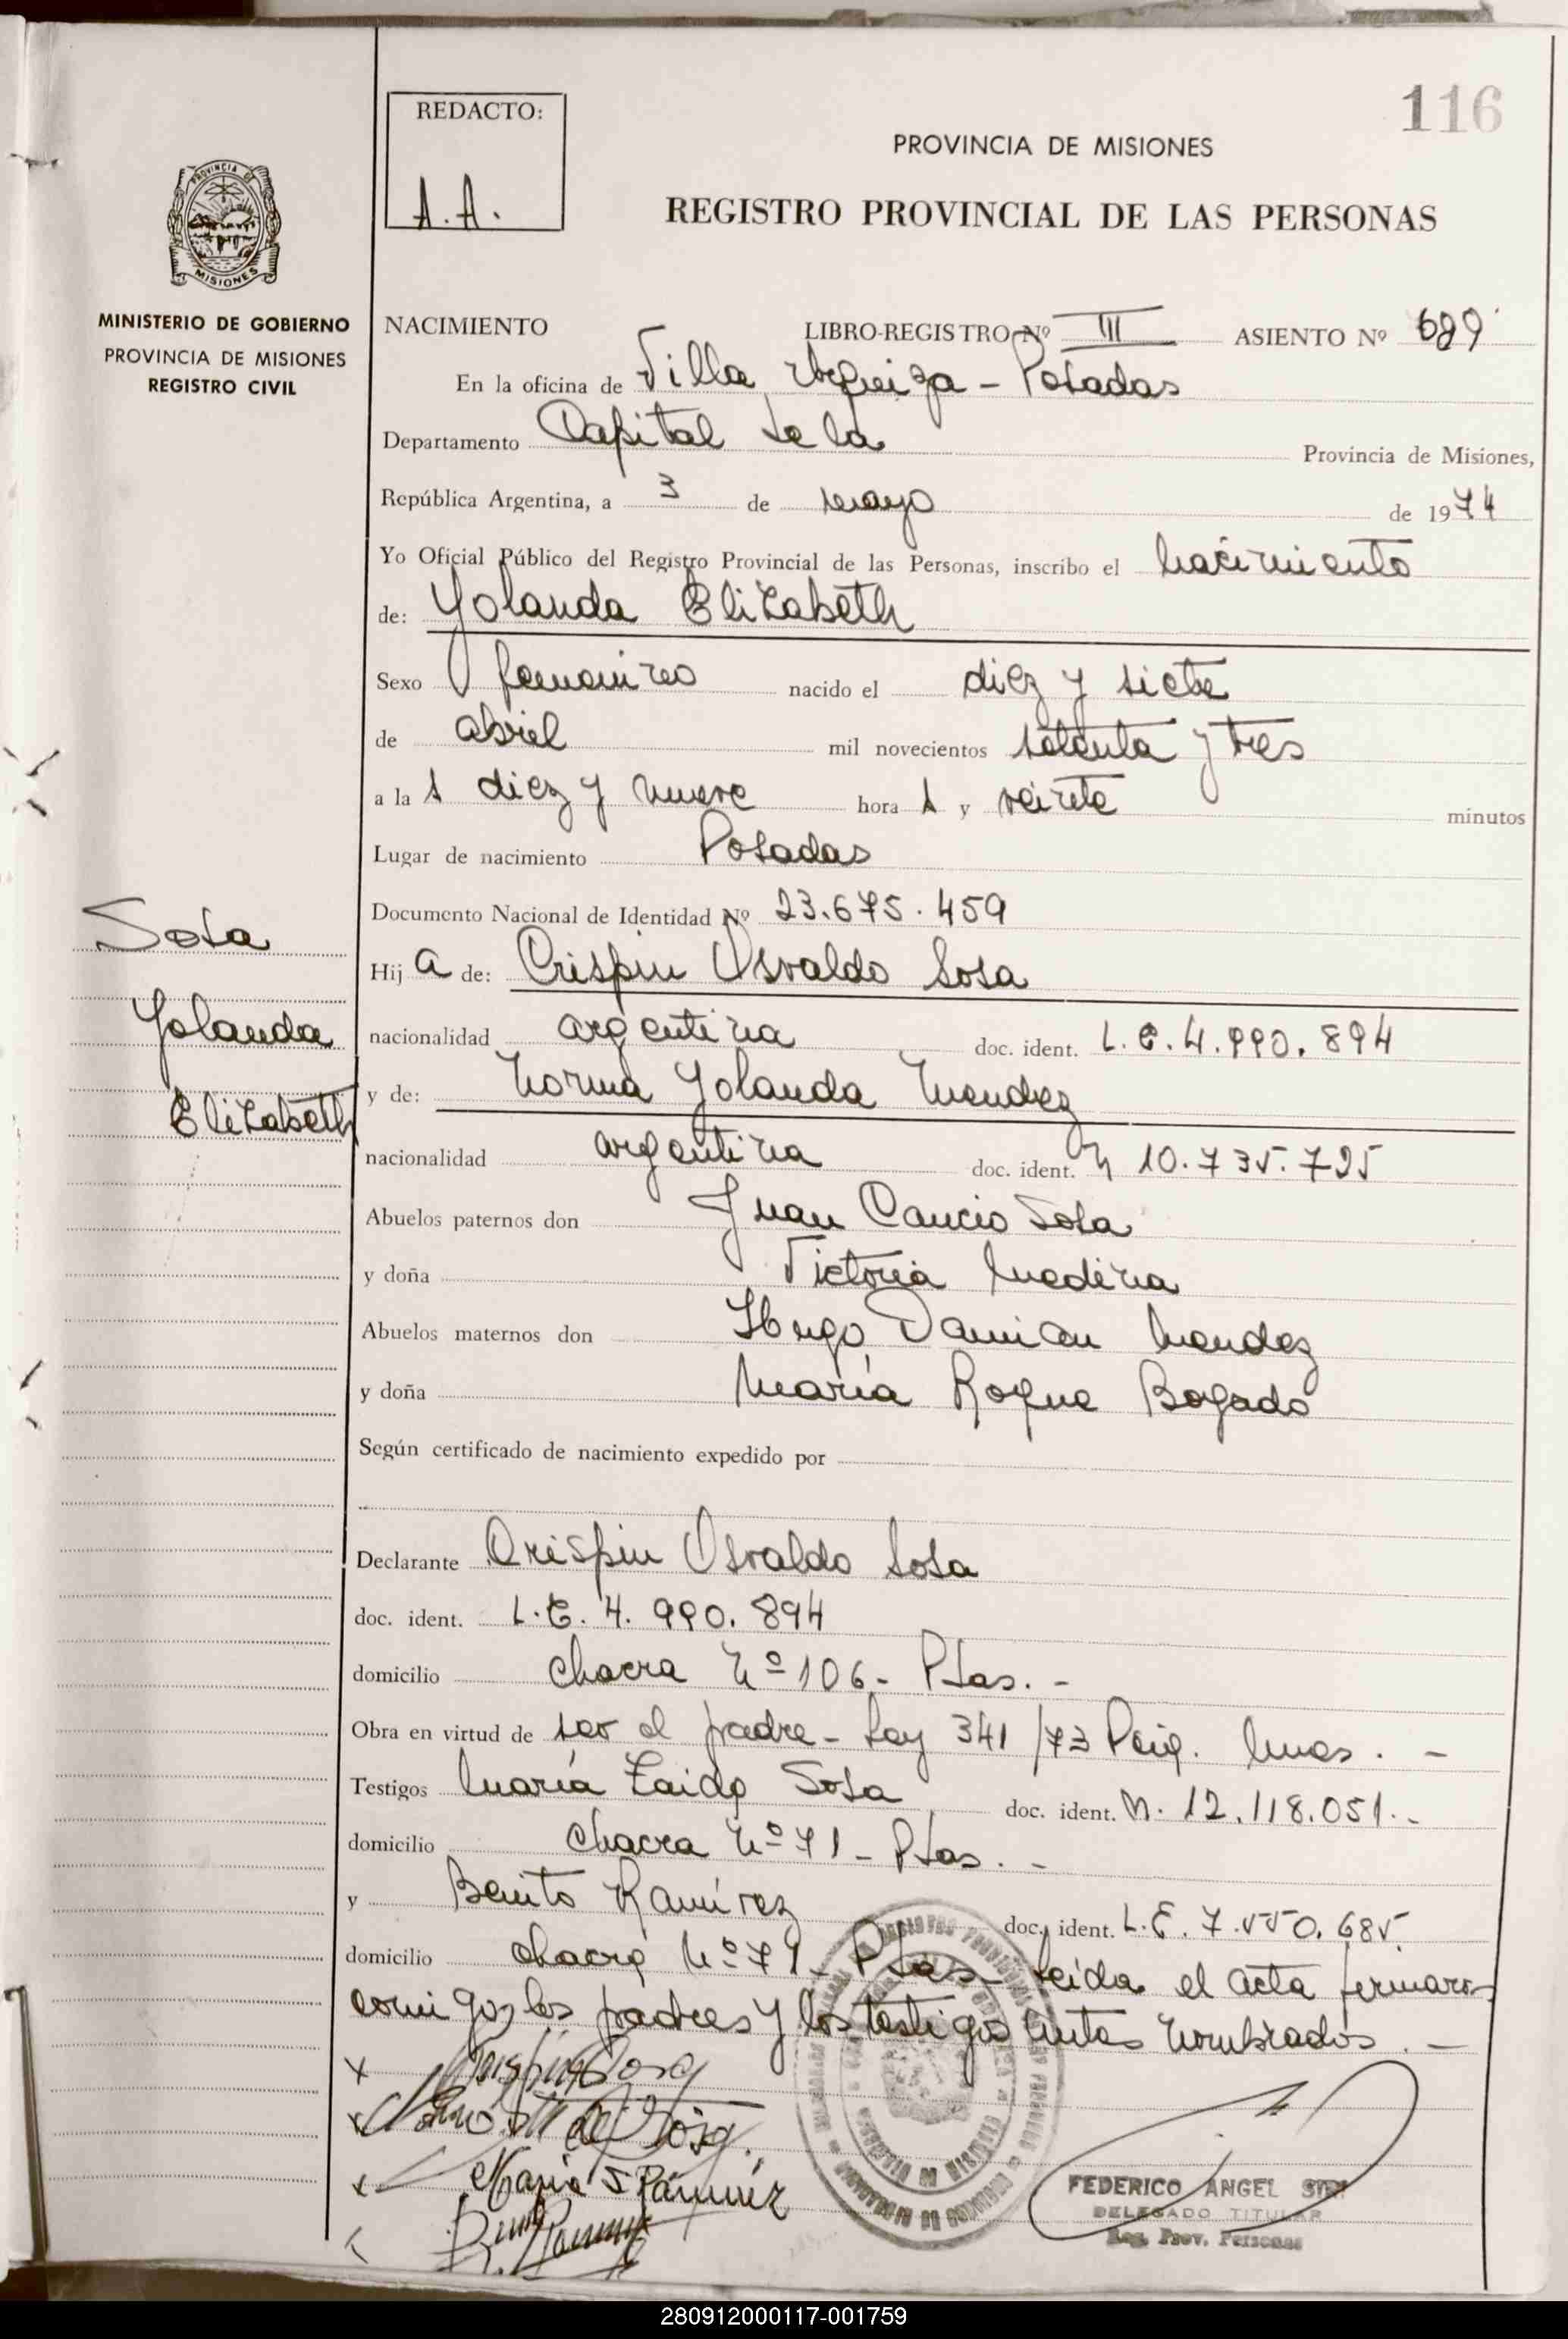 116
REDACTO:
A.A.
PROVINCIA DE MISIONES
REGISTRO PROVINCIAL DE LAS PERSONAS
PROVINCIA DE
MISIONES
MINISTERIO DE GOBIERNO
PROVINCIA DE MISIONES
REGISTRO CIVIL
NACIMIENTO LIBRO-REGISTRO Nº III ASIENTO Nº 689
En la oficina de Villa Urquiza - Posadas
Departamento Capital de la Provincia de Misiones,
República Argentina, a 3 de mayo de 1974
Yo Oficial Público del Registro Provincial de las Personas, inscribo el nacimiento
de: Yolanda Elizabeth
Sexo femenino nacido el diez y siete
de abril mil novecientos setenta y tres
a la s diez y nueve hora s y veinte minutos
Lugar de nacimiento Posadas
Documento Nacional de Identidad Nº 23.675.459
Sosa
Yolanda
Elizabeth
Hij a de: Crispin Osvaldo Sosa
nacionalidad argentina doc. ident. L.E. 4.990.894
y de: Norma Yolanda Mendez
nacionalidad argentina doc. ident. N 10.735.725
Abuelos paternos don Juan Cancio Sosa
y doña Victoria Medina
Abuelos maternos don Hugo Damian Mendez
y doña María Roque Bogado
Según certificado de nacimiento expedido por
Declarante Crispin Osvaldo Sosa
doc. ident. L.E. 4.990.894
domicilio chacra Nº 106 - Pdas. -
Obra en virtud de ser el padre - Ley 341/73 Pcia. Mnes. -
Testigos María Zaida Sosa doc. ident. N. 12.118.051. -
domicilio chacra Nº 71 - Pdas. -
y Benito Ramírez doc. ident. L.E. 7.550.685.
domicilio chacra Nº 71 - Pdas. Leida el acta firmaron
comigo, los padres y los testigos antes nombrados. -
x Crispin Sosa
x de Sosa
x María S Ramírez
x B. Ramírez
FEDERICO ANGEL SIRI
DELEGADO TITULAR
Reg. Prov. Personas
280912000117-001759